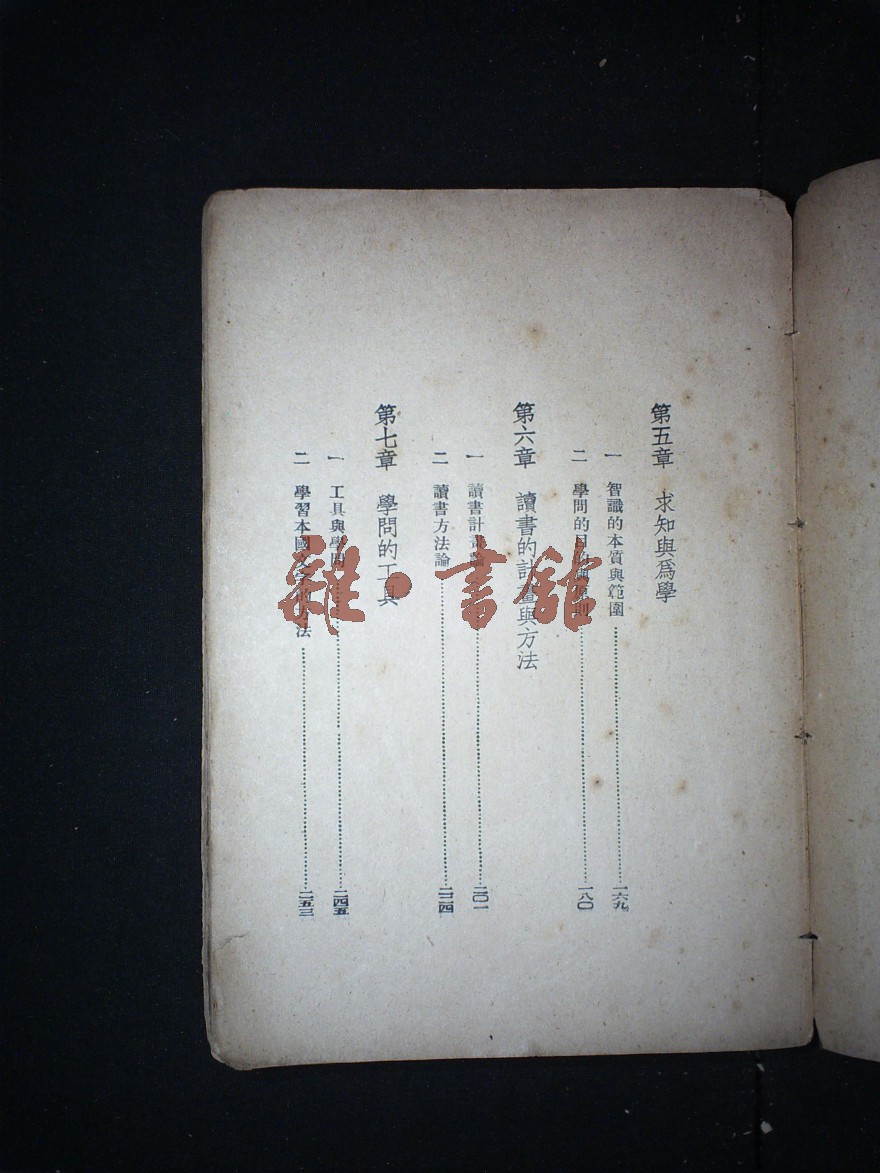 第五章 求知與爲學
一 智識的本質與範圍……一六九
二 學問的目的與原則……一八〇
第六章 讀書的計畫與方法
一 讀書計畫論……二〇一
二 讀書方法論……二二四
第七章 學問的工具
一 工具與學問……二四五
二 學習本國文字的方法……二五三
雜·書館